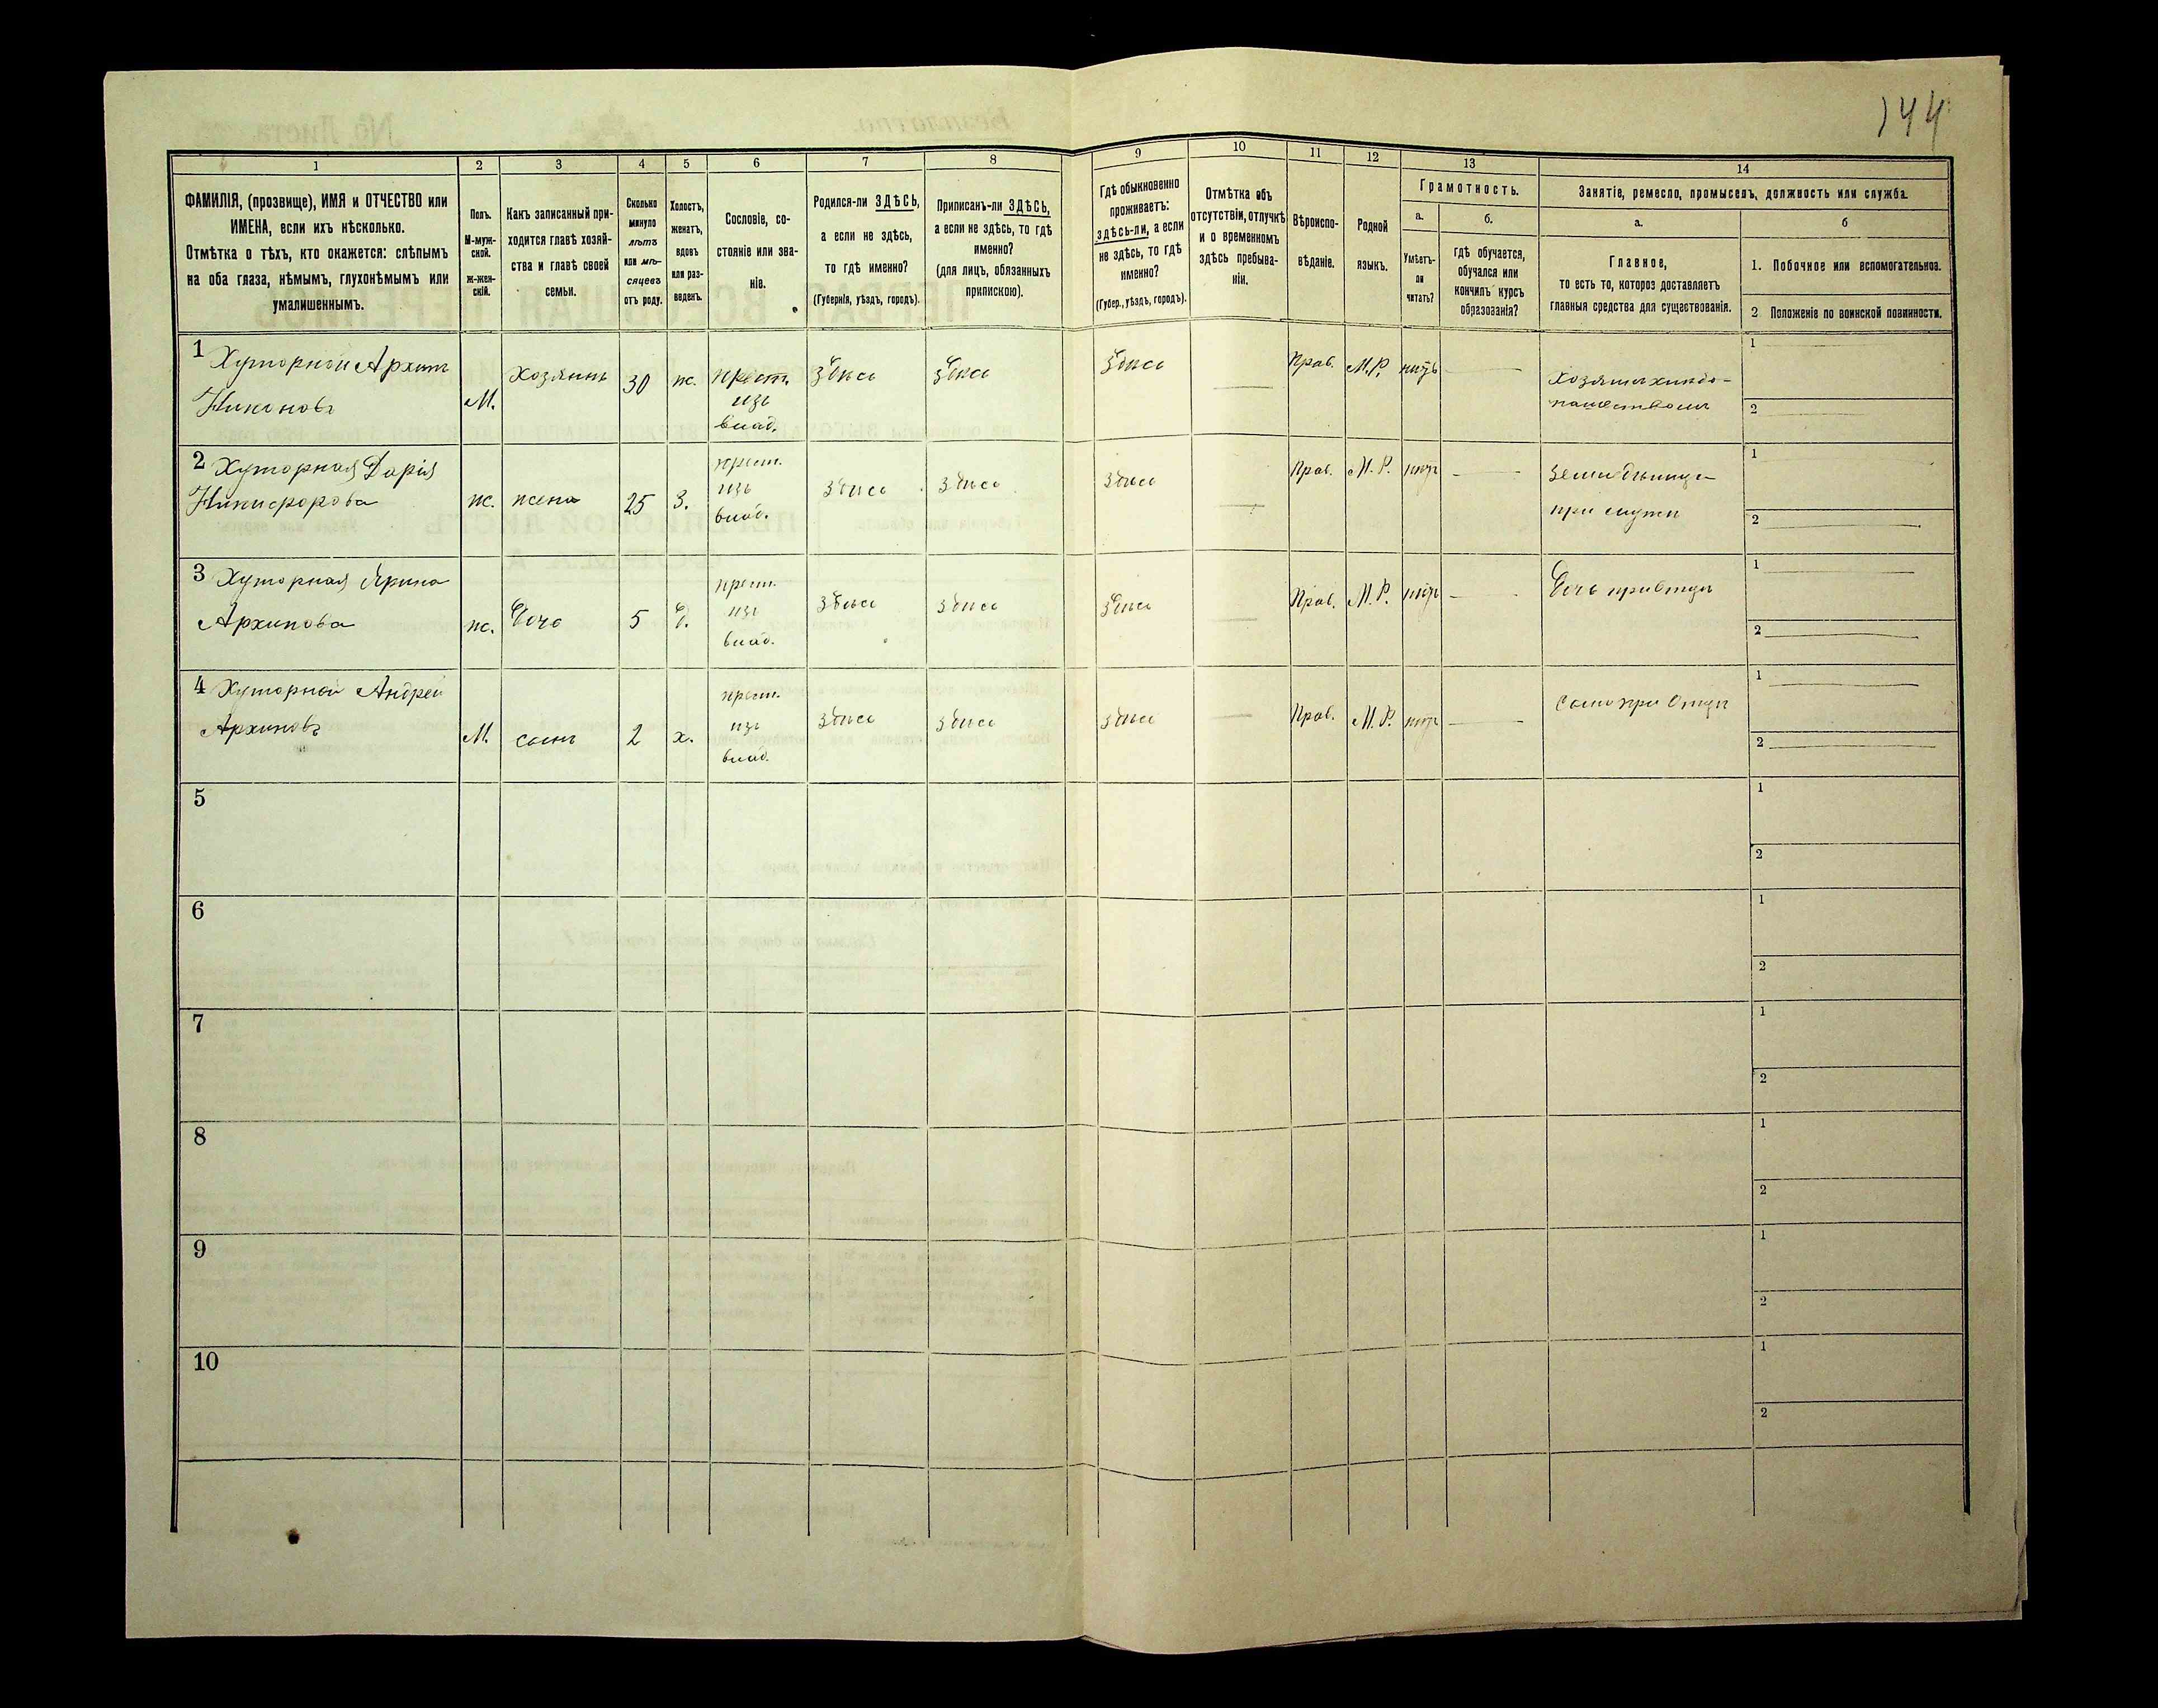 144
1 2 3 4 5 6 7 8 9 10 11 12 13 14
ФАМИЛІЯ, (прозвище), ИМЯ и ОТЧЕСТВО или
ИМЕНА, если ихъ нѣсколько.
Отмѣтка о тѣхъ, кто окажется: слѣпымъ
на оба глаза, нѣмымъ, глухонѣмымъ или
умалишеннымъ.
Полъ.
М-муж-
ской.
ж-жен-
скій.
Какъ записанный при-
ходится главѣ хозяй-
ства и главѣ своей
семьи.
Сколько
минуло
лѣтъ
или мѣ-
сяцевъ
отъ роду.
Холостъ,
женатъ,
вдовъ
или раз-
веденъ.
Сословіе, со-
стояніе или зва-
ніе.
Родился-ли ЗДѢСЬ,
а если не здѣсь,
то гдѣ именно?
(Губернія, уѣздъ, городъ).
Приписанъ-ли ЗДѢСЬ,
а если не здѣсь, то гдѣ
именно?
(для лицъ, обязанныхъ
припискою).
Гдѣ обыкновенно
проживаетъ:
здѣсь-ли, а если
не здѣсь, то гдѣ
именно?
(Губер., уѣздъ, городъ).
Отмѣтка объ
отсутствіи, отлучкѣ
и о временномъ
здѣсь пребыва-
ніи.
Вѣроиспо-
вѣданіе.
Родной
языкъ.
Грамотность.
а.
Умѣетъ-
ли
читать?
б.
гдѣ обучается,
обучался или
кончилъ курсъ
образованія?
Занятіе, ремесло, промыселъ, должность или служба.
а.
Главное,
то есть то, которое доставляетъ
главныя средства для существованія.
б
1. Побочное или вспомогательное.
2 Положеніе по воинской повинности.
1 Хуторной Архипъ
Никоновъ
М.
Хозяинъ
30
ж.
крест.
изъ
влад.
Здѣсь
Здѣсь
Здѣсь
Прав.
М.Р.
нѣтъ
1
2
2 Хуторная Дарія
Никифорова
ж.
жена
25
З.
крест.
изъ
влад.
Здѣсь
Здѣсь
Здѣсь
Прав.
М.Р.
нѣтъ
при мужѣ
1
2
3 Хуторная Ирина
Архипова
ж.
Дочь
5
Д.
крест.
изъ
влад.
Здѣсь
Здѣсь
Здѣсь
Прав.
М.Р.
нѣтъ
Дочь при отцѣ
1
2
4 Хуторной Андрей
Архиповъ
М.
сынъ
2
х.
крест.
изъ
влад.
Здѣсь
Здѣсь
Здѣсь
Прав.
М.Р.
нѣтъ
Сынъ при Отцѣ
1
2
5
1
2
6
1
2
7
1
2
8
1
2
9
1
2
10
1
2